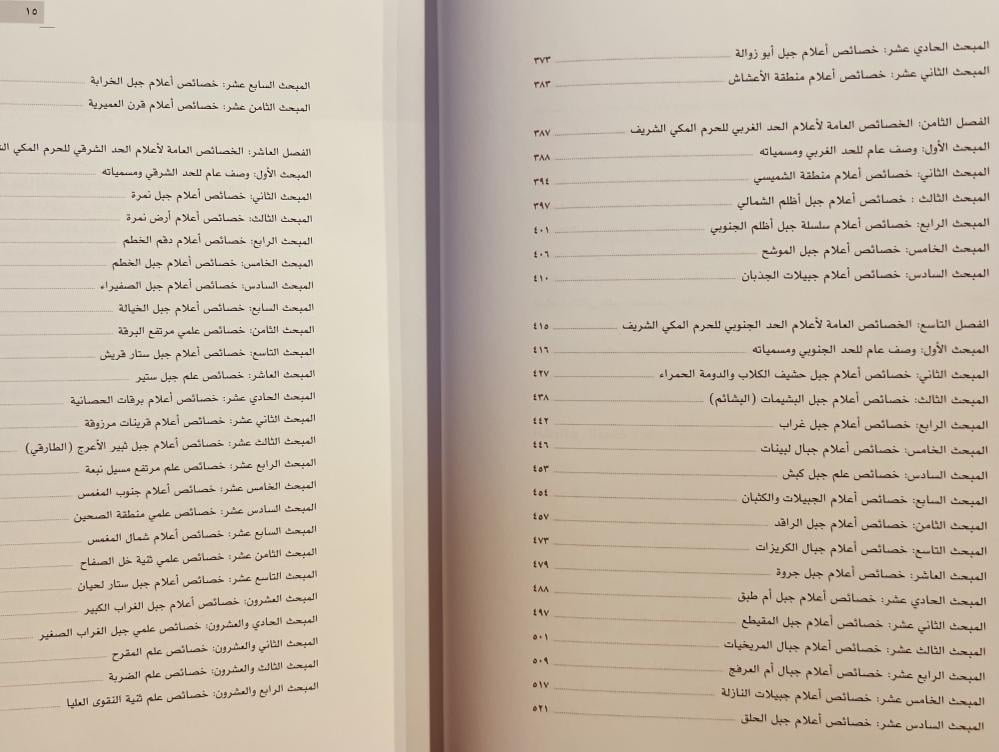 المبحث الحادي عشر: خصائص أعلام جبل أبو زوالة ٣٧٣
المبحث الثاني عشر: خصائص أعلام منطقة الأعشاش ٣٨٣
الفصل الثامن: الخصائص العامة لأعلام الحد الغربي للحرم المكي الشريف ٣٨٧
المبحث الأول: وصف عام للحد الغربي ومسمياته ٣٨٨
المبحث الثاني: خصائص أعلام منطقة الشميسي ٣٩٤
المبحث الثالث : خصائص أعلام جبل أظلم الشمالي ٣٩٧
المبحث الرابع: خصائص أعلام سلسلة جبل أظلم الجنوبي ٤٠١
المبحث الخامس: خصائص أعلام جبل الموشح ٤٠٦
المبحث السادس: خصائص أعلام جبيلات الجذبان ٤١٠
الفصل التاسع: الخصائص العامة لأعلام الحد الجنوبي للحرم المكي الشريف ٤١٥
المبحث الأول: وصف عام للحد الجنوبي ومسمياته ٤١٦
المبحث الثاني: خصائص أعلام جبل حشيف الكلاب والدومة الحمراء ٤٢٧
المبحث الثالث: خصائص أعلام جبل البشيمات (البشائم) ٤٣٨
المبحث الرابع: خصائص أعلام جبل غراب ٤٤٢
المبحث الخامس: خصائص أعلام جبال لبينات ٤٤٦
المبحث السادس: خصائص علم جبل كبش ٤٥٣
المبحث السابع: خصائص أعلام الجبيلات والكثبان ٤٥٤
المبحث الثامن: خصائص أعلام جبل الراقد ٤٥٧
المبحث التاسع: خصائص أعلام جبال الكريزات ٤٧٣
المبحث العاشر: خصائص أعلام جبل جروة ٤٧٩
المبحث الحادي عشر: خصائص أعلام جبل أم طبق ٤٨٨
المبحث الثاني عشر: خصائص أعلام جبل المقيطع ٤٩٧
المبحث الثالث عشر: خصائص أعلام جبال المريخيات ٥٠١
المبحث الرابع عشر: خصائص أعلام جبال أم العرفج ٥٠٩
المبحث الخامس عشر: خصائص أعلام جبيلات النازلة ٥١٧
المبحث السادس عشر: خصائص أعلام جبل الحلق ٥٢١
١٥
المبحث السابع عشر: خصائص أعلام جبل الخرابة
المبحث الثامن عشر: خصائص أعلام قرن العميرية
الفصل العاشر: الخصائص العامة لأعلام الحد الشرقي للحرم المكي
المبحث الأول: وصف عام للحد الشرقي ومسمياته
المبحث الثاني: خصائص أعلام جبل نمرة
المبحث الثالث: خصائص أعلام أرض نمرة
المبحث الرابع: خصائص أعلام دقم الخطم
المبحث الخامس: خصائص أعلام جبل الخطم
المبحث السادس: خصائص أعلام جبل الصفيراء
المبحث السابع: خصائص أعلام جبل الخيالة
المبحث الثامن: خصائص علمي مرتفع البرقة
المبحث التاسع: خصائص أعلام جبل ستار قريش
المبحث العاشر: خصائص علم جبل ستير
المبحث الحادي عشر: خصائص أعلام برقات الحصانية
المبحث الثاني عشر: خصائص أعلام قرينات مرزوقة
المبحث الثالث عشر: خصائص أعلام جبل ثبير الأعرج (الطارقي)
المبحث الرابع عشر: خصائص علم مرتفع مسيل نبعة
المبحث الخامس عشر: خصائص أعلام جنوب المغمس
المبحث السادس عشر: خصائص علمي منطقة الصحين
المبحث السابع عشر: خصائص أعلام شمال المغمس
المبحث الثامن عشر: خصائص علمي ثنية خل الصفاح
المبحث التاسع عشر: خصائص أعلام جبل ستار لحيان
المبحث العشرون: خصائص أعلام جبل الغراب الكبير
المبحث الحادي والعشرون: خصائص علمي جبل الغراب الصغير
المبحث الثاني والعشرون: خصائص علم المقرح
المبحث الثالث والعشرون: خصائص علم الضربة
المبحث الرابع والعشرون: خصائص علم ثنية النقوى العليا